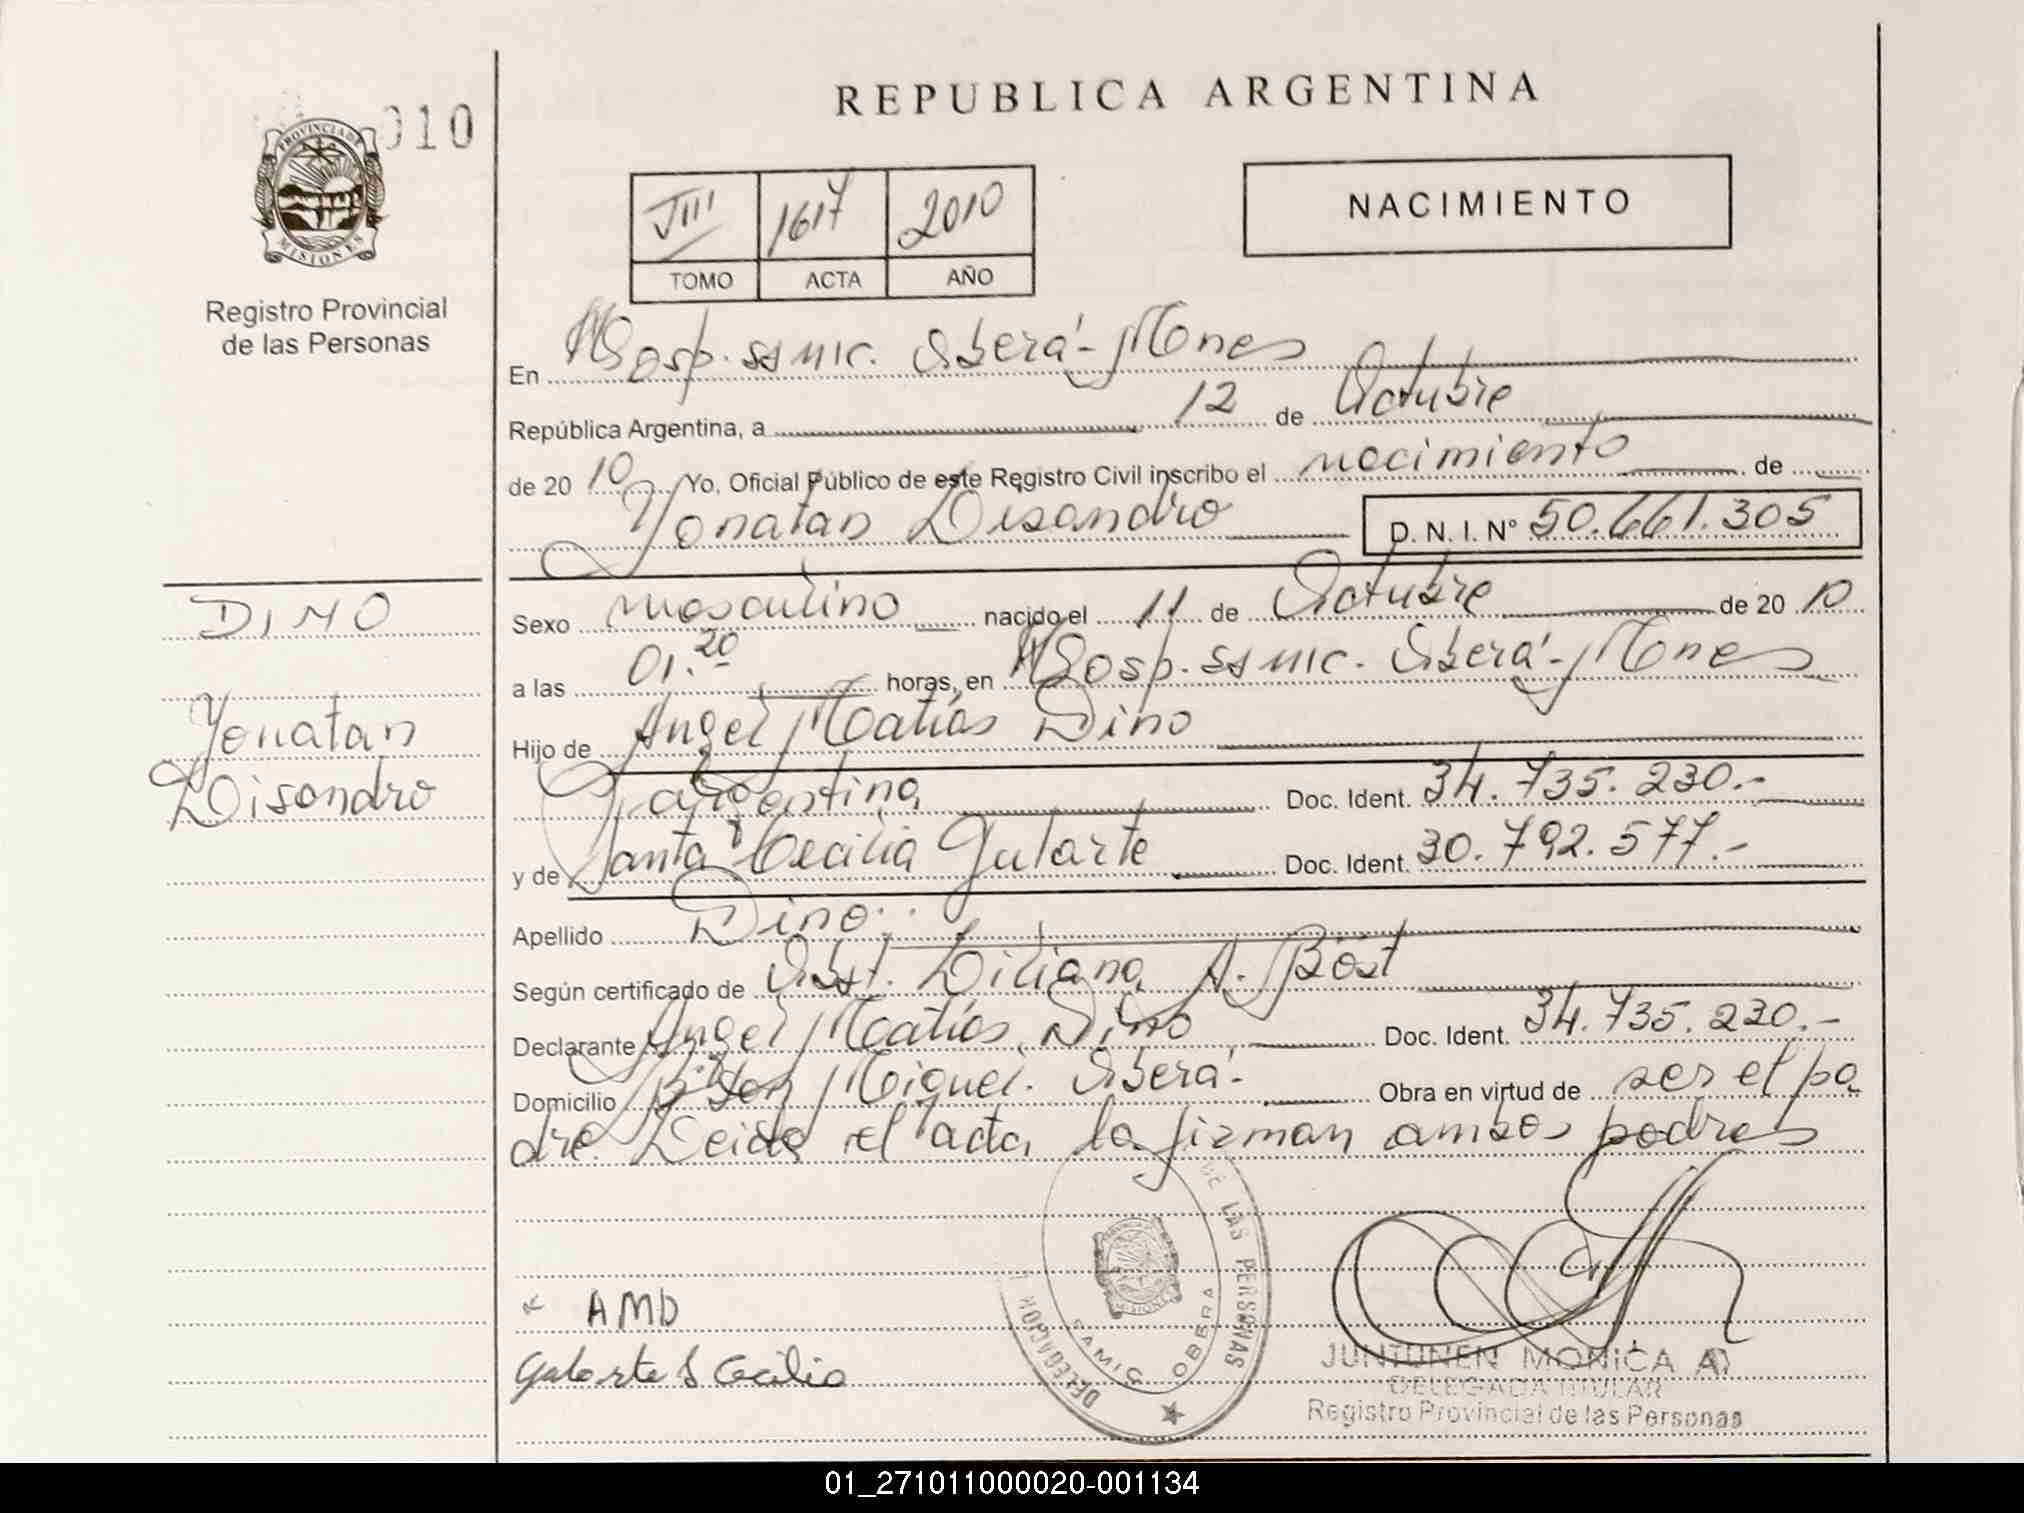 010
PROVINCIA DE
MISIONES
Registro Provincial
de las Personas
REPUBLICA ARGENTINA
VIII 1617 2010
TOMO ACTA AÑO
NACIMIENTO
En Hosp. SAMIC. Oberá-Mnes
República Argentina, a 12 de Octubre
de 2010 Yo, Oficial Público de este Registro Civil inscribo el nacimiento de
Yonatan Lisandro
D. N. I. Nº 50.661.305
DINO
Yonatan
Lisandro
Sexo masculino nacido el 11 de Octubre de 2010
a las 01.20 horas, en Hosp. SAMIC. Oberá-Mnes
Hijo de Angel Matías Dino
argentina Doc. Ident. 34.735.230.-
y de Santa Cecilia Gularte Doc. Ident. 30.792.577.-
Apellido Dino.
Según certificado de Obst. Liliana A. Bost
Declarante Angel Matías Dino Doc. Ident. 34.735.230.-
Domicilio Miguel. Oberá- Obra en virtud de ser el pa
dre. Leida el acta la firman ambos padres
AMD
Gularte S Cecilia
DELEGACION DE LAS PERSONAS
SAMIC OBERA
MISIONES
JUNTUNEN MONICA A.
DELEGADA TITULAR
Registro Provincial de las Personas
01_271011000020-001134